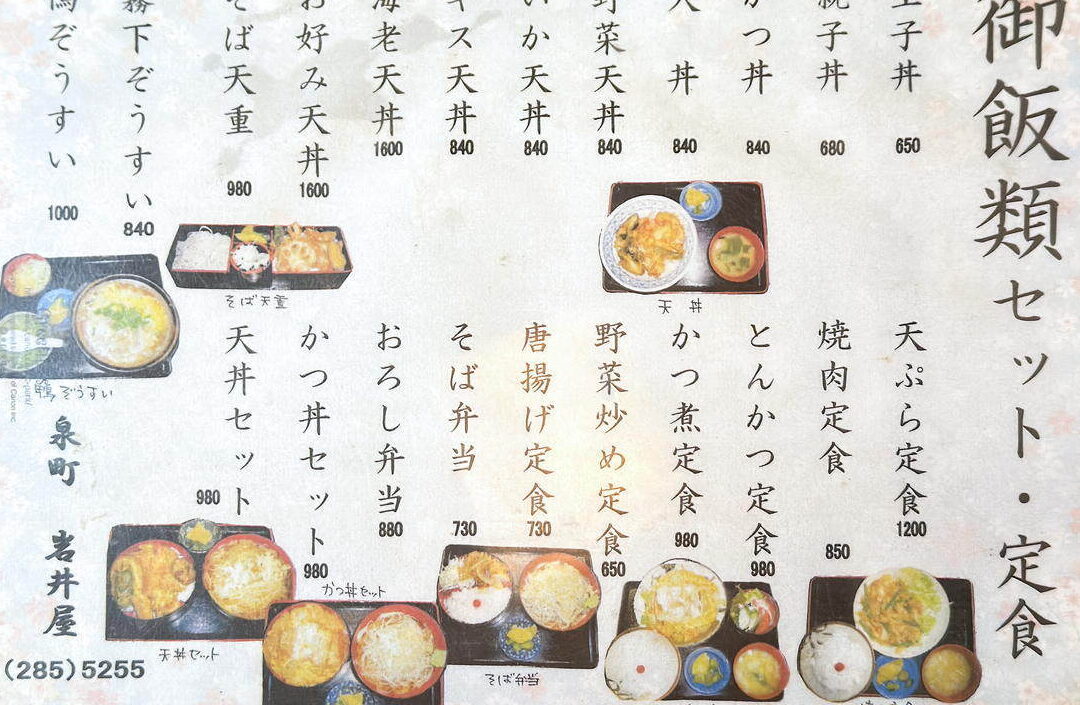 御飯類セット・定食
玉子丼 650
親子丼 680
かつ丼 840
天丼 840
野菜天丼 840
いか天丼 840
キス天丼 840
海老天丼 1600
お好み天丼 1600
そば天重 980
霧下ぞうすい 840
鴨ぞうすい 1000
天丼
そば天重
鴨ぞうすい
天ぷら定食 1200
焼肉定食 850
とんかつ定食 980
かつ煮定食 980
野菜炒め定食 650
唐揚げ定食 730
そば弁当 730
おろし弁当 880
かつ丼セット 980
天丼セット 980
かつ丼セット
そば弁当
天丼セット
泉町 岩井屋
(285)5255